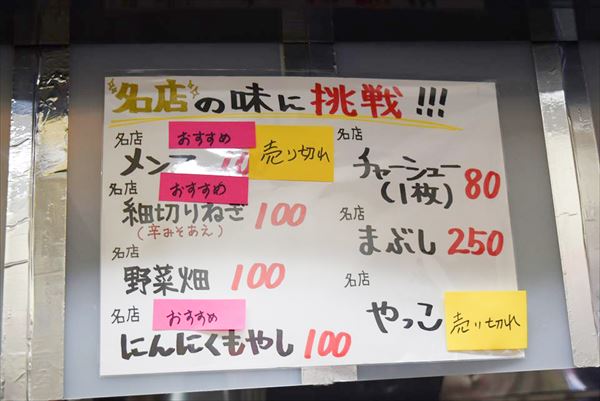 名店の味に挑戦!!!
名店 おすすめ
メンマ 売り切れ
名店 おすすめ
細切りねぎ 100
(辛みそあえ)
名店
野菜畑 100
名店 おすすめ
にんにくもやし 100
名店
チャーシュー
(1枚) 80
名店
まぶし 250
名店
やっこ 売り切れ